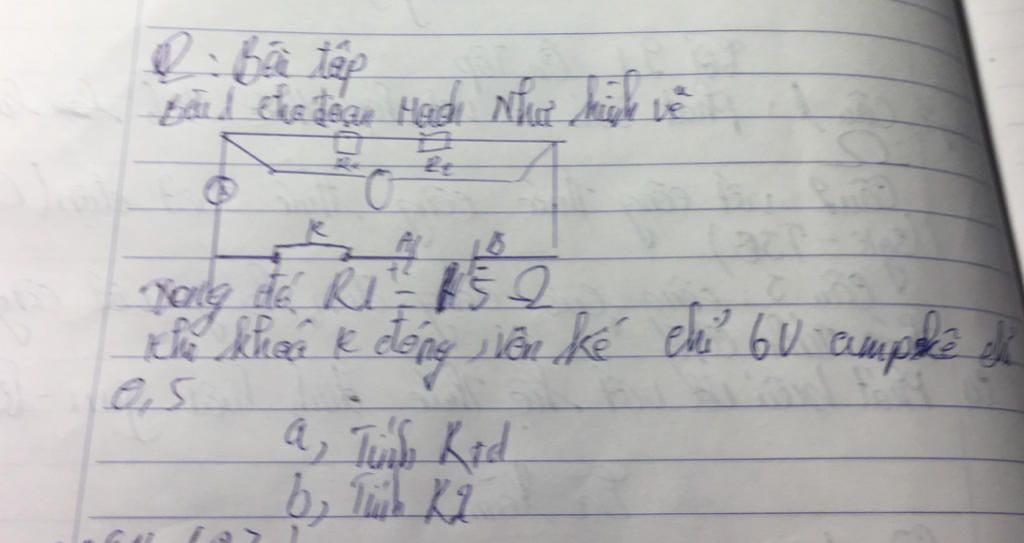 : Bài tập
Bài 1 cho đoạn mạch Như hình vẽ
R1 R2
A
K A B
+
trong đó R1 = 5 Ω
khi khoá K đóng, vôn kế chỉ 6V ampe kế chỉ
0,5
a, Tính Rtđ
b, Tính R2